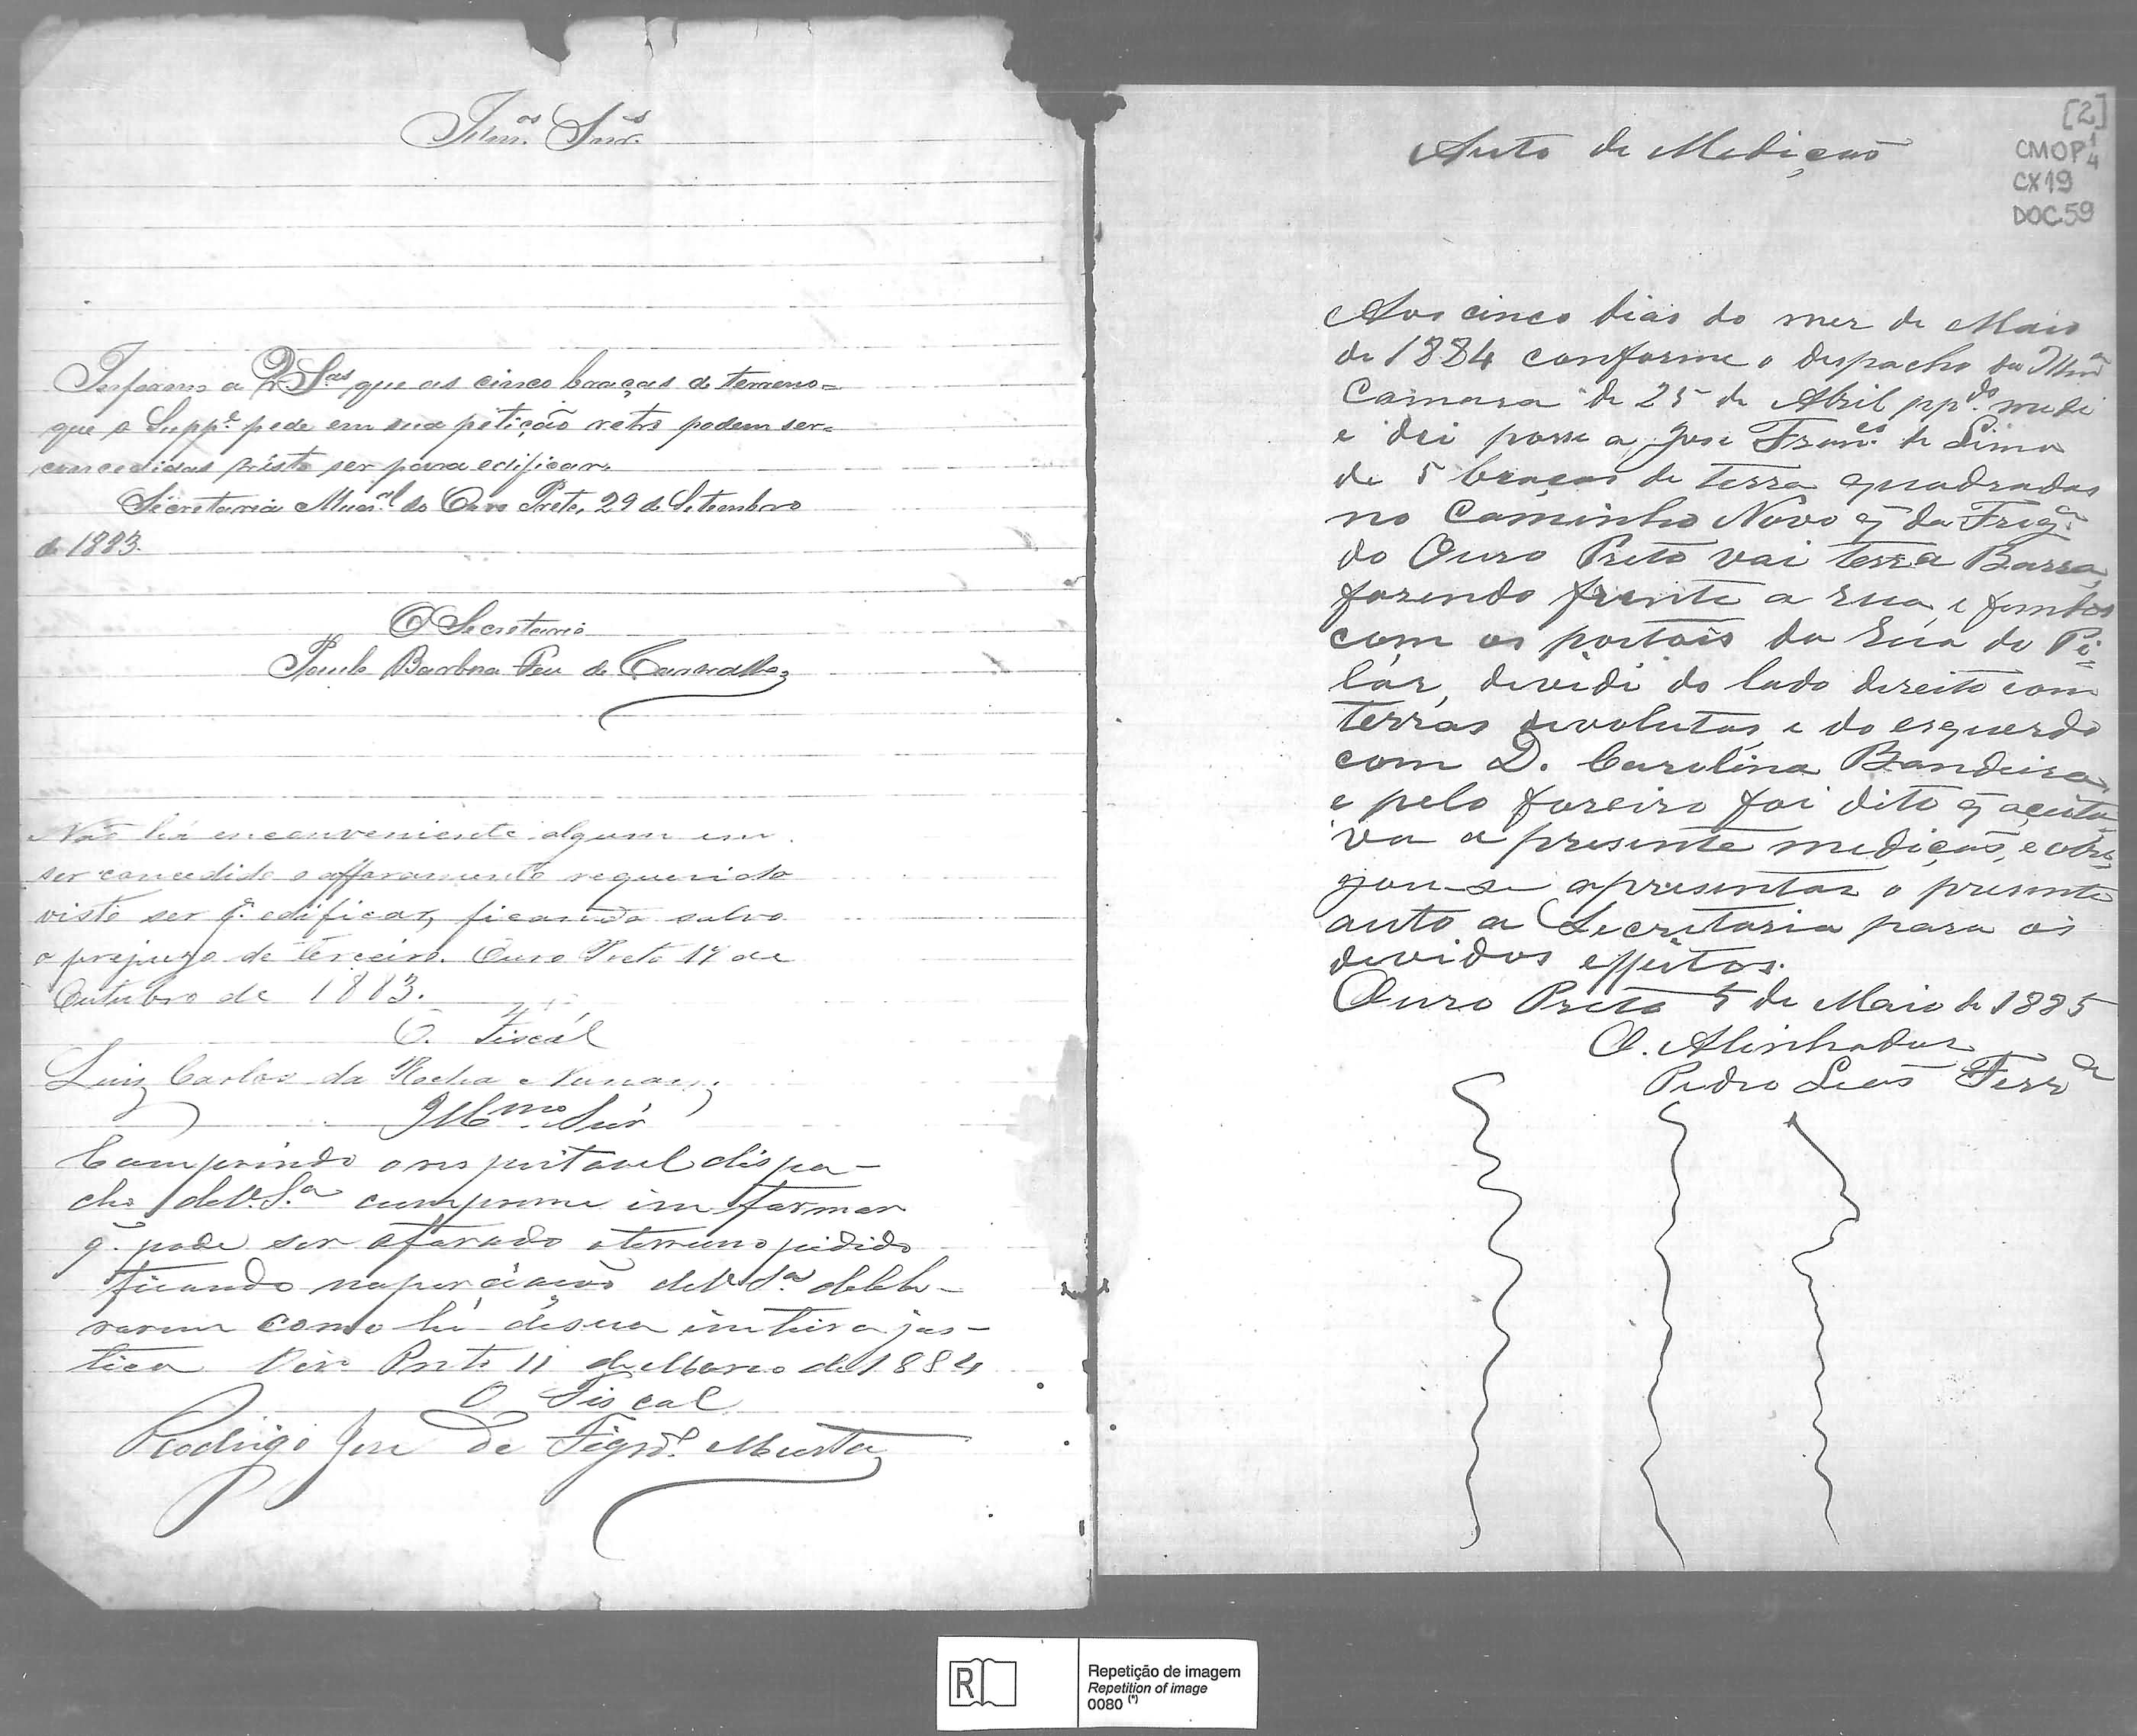 Illm.os Snr.s
Informo a VV. S.as que as cinco braças de terreno=
que o Supp.e pede em sua petição retro podem ser=
concedidas visto ser para edificar.
Secretaria Mun.al do Ouro Preto, 29 de Setembro
de 1883.
O Secretario
Paulo Barbosa Feu de Carvalho
Não há enconveniente algum em
ser concedido o afforamento requerido
visto ser p.a edificar, ficando salvo
o prejuizo de terceiro. Ouro Preto 17 de
Outubro de 1883.
O. Fiscal
Luiz Carlos da Rocha
Ill.mo Snr
Comprindo o respeitavel dispa-
cho de V. S.a cumpreme imformar
q. pode ser aforado o terreno pidido
ficando de V. S.a delebe-
rarem como hé de sua inteira jus-
tica Oiro Preto 11 de Marco de 1884
O Fiscal
Rodrigo Jose de Figrd.o Murta
[2]
CMOP 1/4
CX19
DOC.59
Auto de Medição
Aos cinco dias do mez de Maio
de 1884 conforme o despacho da Illm.a
Camara de 25 de Abril pp.do medi
e dei posse a Jose Fran.co de Lima
de 5 braças de terra quadradas
no Caminho Novo q̃ da Freg.a
do Ouro Preto vai terra Barra,
fazendo frente a rua, e fundos
com os portais da rua do Pi=
lár, devidi do lado direito com
terras devolutas, e do esquerdo
com D. Carolina Bandeira,
e pelo foreiro foi dito q̃ aceita-
va a presente medição, e obri-
gou-se apresentar o presente
auto a Secretaria para os
devidos effeitos.
Ouro Preto 5 de Maio de 1885
O. Alinhador
Pedro Leão Ferr.a
R
Repetição de imagem
Repetition of image
0080 (*)